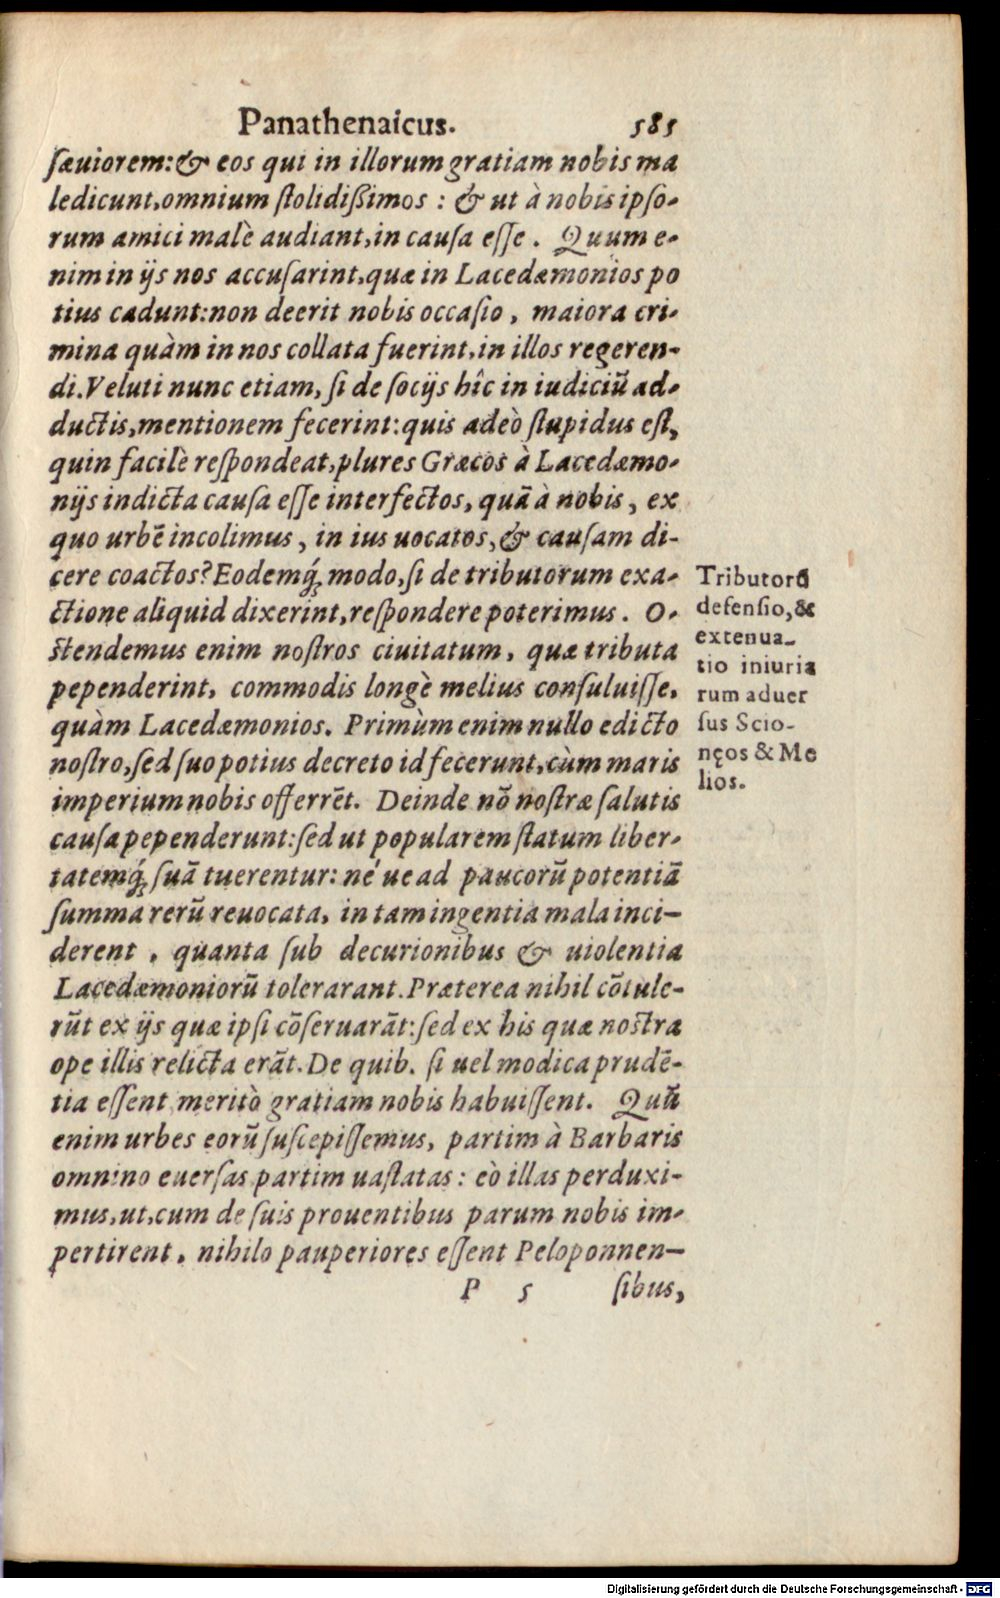 Panathenaicus. 585
ſæuiorem: & eos qui in illorum gratiam nobis ma
ledicunt, omnium ſtolidißimos : & ut à nobis ipſo-
rum amici malè audiant, in cauſa eſſe . Quum e-
nim in ijs nos accuſarint, quæ in Lacedæmonios po
tius cadunt: non deerit nobis occaſio , maiora cri-
mina quàm in nos collata fuerint, in illos regeren-
di. Veluti nunc etiam, ſi de ſocijs hîc in iudiciũ ad-
ductis, mentionem fecerint: quis adeò ſtupidus eſt,
quin facilè reſpondeat, plures Græcos à Lacedæmo-
nijs indicta cauſa eſſe interfectos, quã à nobis , ex
quo urbẽ incolimus , in ius uocatos, & cauſam di-
cere coactos? Eodemq́; modo, ſi de tributorum exa-
ctione aliquid dixerint, reſpondere poterimus . O-
ſtendemus enim noſtros ciuitatum , quæ tributa
pependerint, commodis longè melius conſuluiſſe,
quàm Lacedæmonios. Primùm enim nullo edicto
noſtro, ſed ſuo potius decreto id fecerunt, cùm maris
imperium nobis offerrẽt. Deinde nõ noſtræ ſalutis
cauſa pependerunt: ſed ut popularem ſtatum liber-
tatemq́; ſuã tuerentur: né ue ad paucorũ potentiã
ſumma rerũ reuocata, in tam ingentia mala inci-
derent , quanta ſub decurionibus & uiolentia
Lacedæmoniorũ tolerarant. Præterea nihil cõtule-
rũt ex ijs quæ ipſi cõſeruarãt: ſed ex his quæ noſtra
ope illis relicta erãt. De quib. ſi uel modica prudẽ-
tia eſſent, meritò gratiam nobis habuiſſent. Quũ
enim urbes eorũ ſuſcepiſſemus, partim à Barbaris
omnino euerſas partim uaſtatas : eò illas perduxi-
mus, ut, cum de ſuis prouentibus parum nobis im-
pertirent , nihilo pauperiores eſſent Peloponnen-
P 5 ſibus,
Tributorũ
defenſio, &
extenua-
tio iniuria
rum aduer
ſus Scio-
nęos & Me
lios.
Digitalisierung gefördert durch die Deutsche Forschungsgemeinschaft - DFG